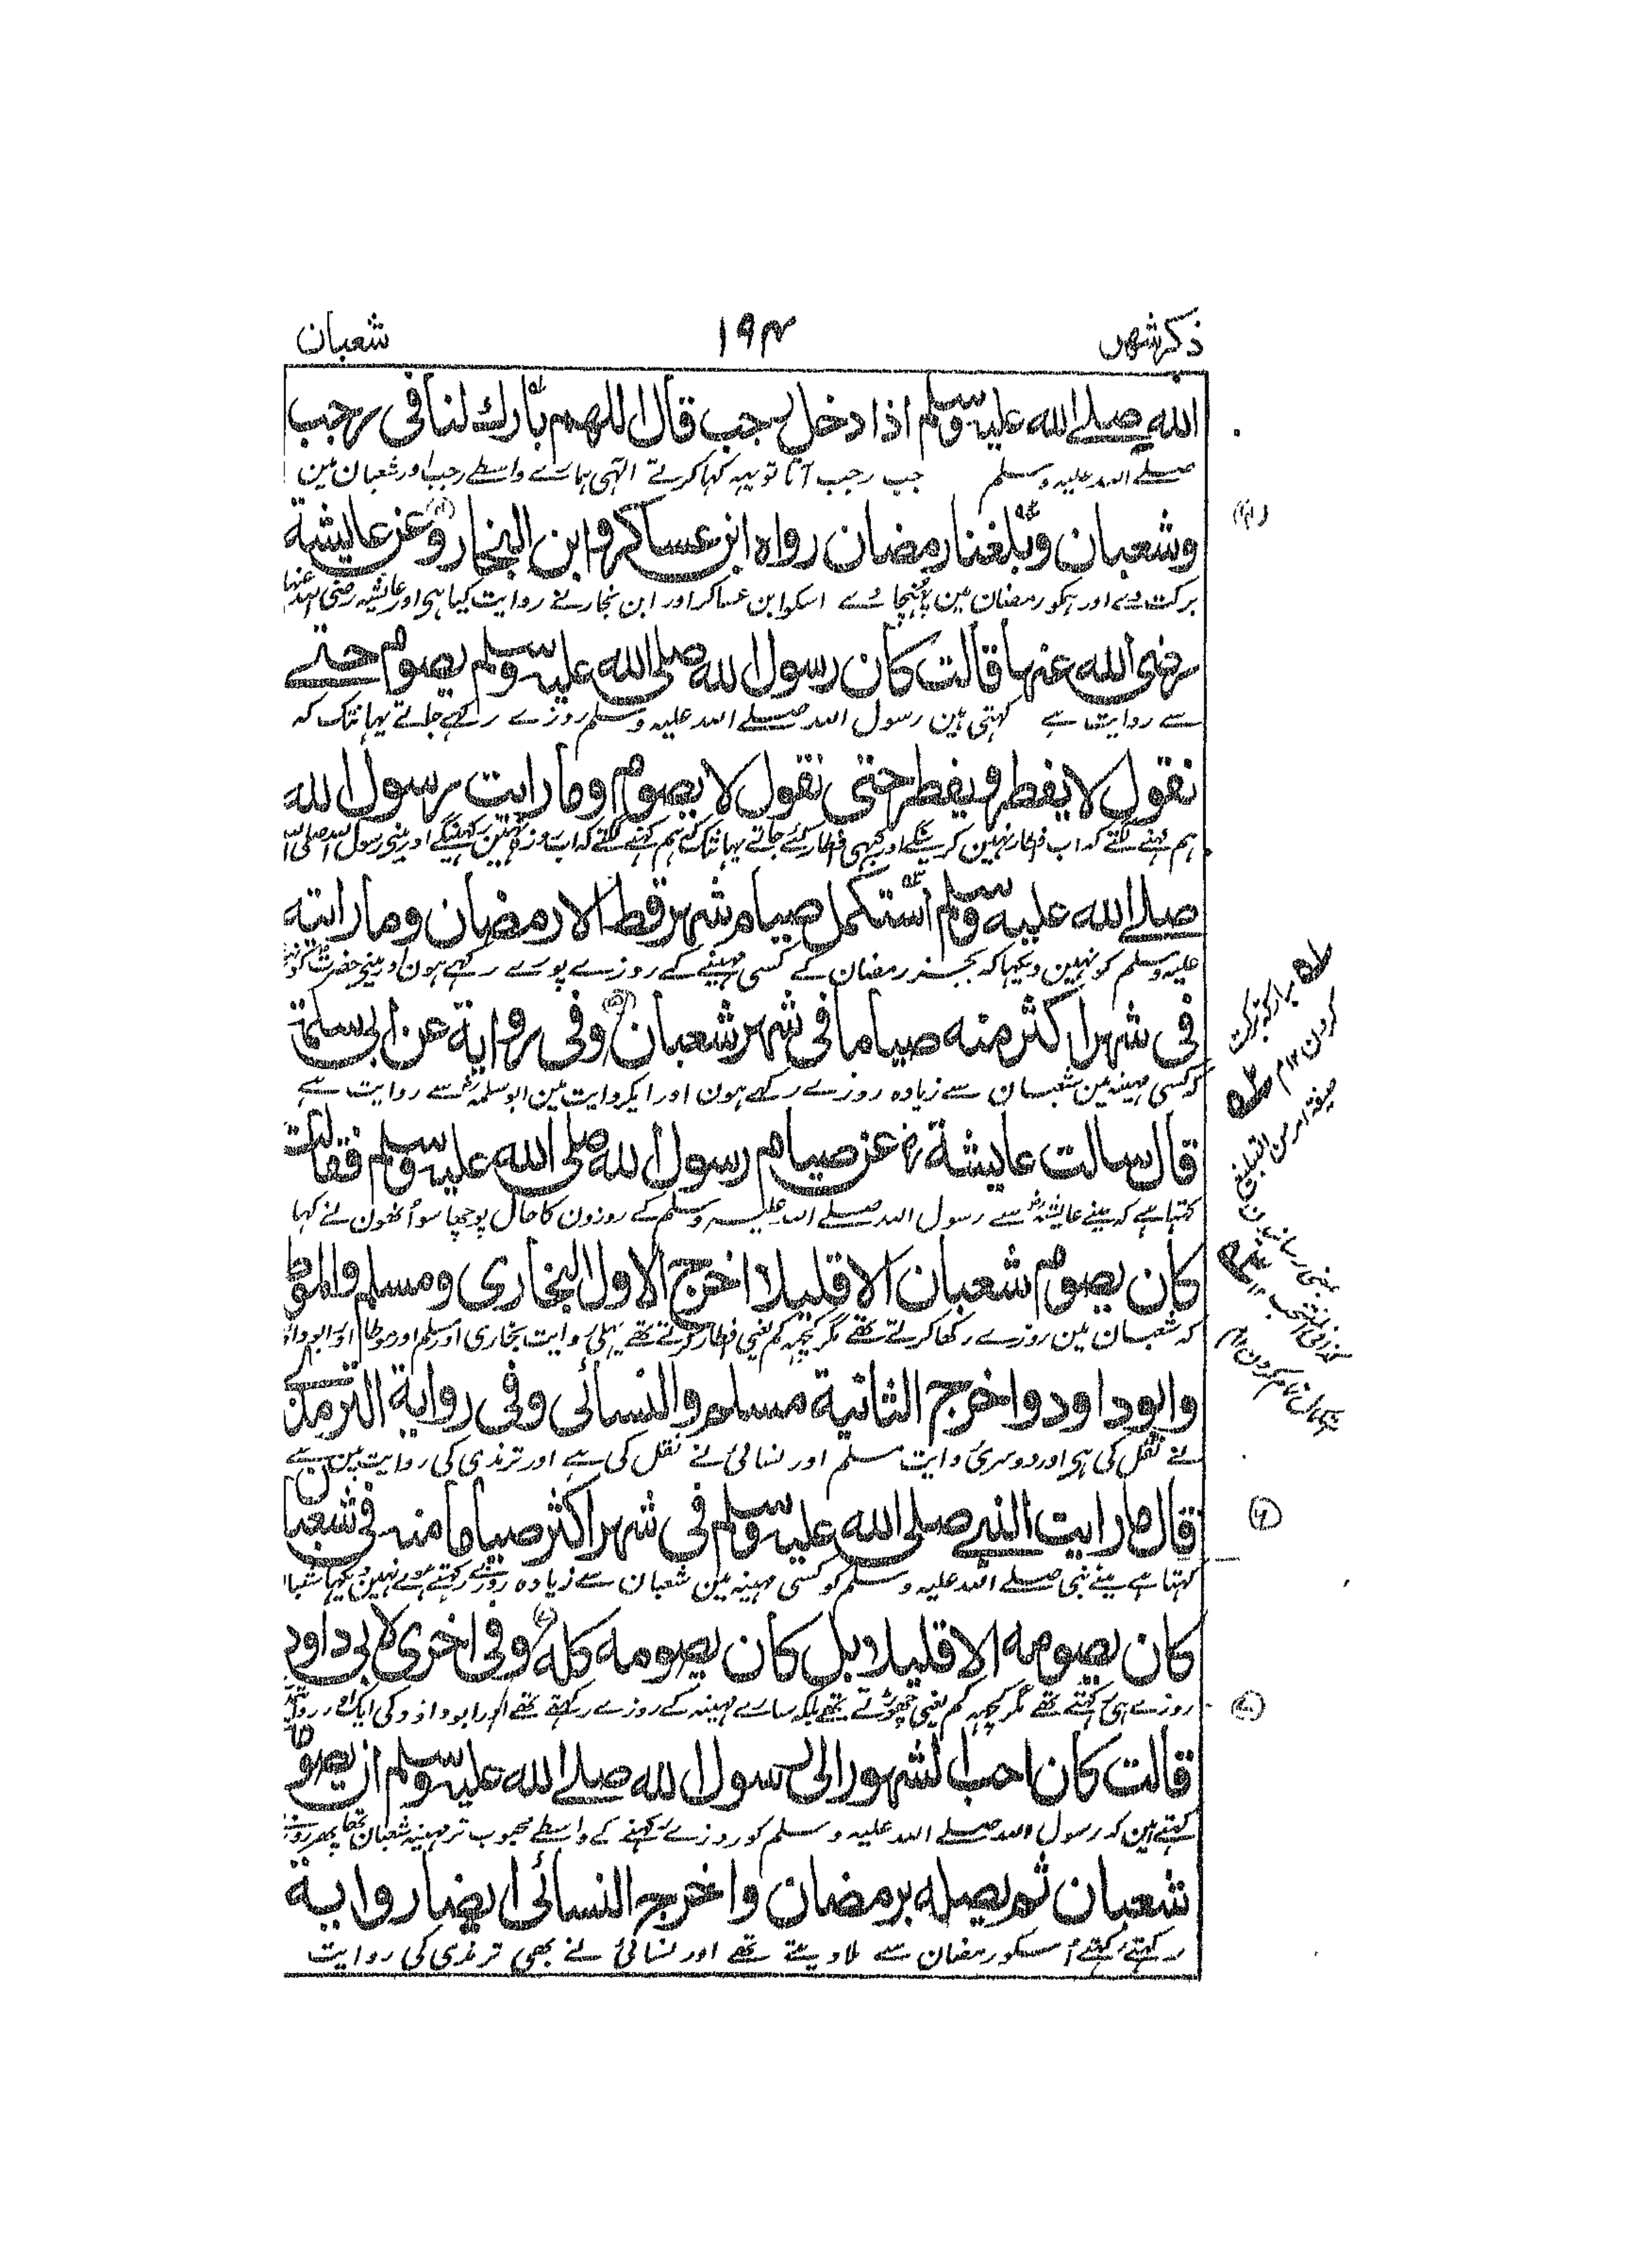 ذكر شهر ۱۹۴ شعبان
الله صلے الله عليه وسلم اذا دخل رجب قال اللهم بارك لنا فى رجب
صلے اللہ علیہ وسلم جب رجب آتا تو یہہ کہا کرتے الٰہی ہمارے واسطے رجب اور شعبان مین
وشعبان وبلغنا رمضان رواه ابن عساكر وابن النجار وعن عايشة
برکت دے اور ہمکو رمضان مین پہنچا دے اسکو ابن عساکر اور ابن نجار نے روایت کیا ہی اور عایشہ رضی اللہ عنہا
رضى الله عنها قالت كان رسول الله صلى الله عليه وسلم يصوم حتے
سے روایت ہے کہتی ہین رسول اللہ صلے اللہ علیہ وسلم روزے رکہے جاتے یہانتک کہ
نقول لا يفطر ويفطر حتى نقول لا يصوم وما رايت رسول الله
ہم کہنے لگتے کہ اب فطار نہین کرینگے اور کبہی فطار کئے جاتے یہانتک کہ ہم کہنے لگتے کہ اب روزہ نہین رکہینگے اور مینی رسول اللہ صلی اللہ
صلے الله عليه وسلم استكمل صيام شهر قط الا رمضان وما رايته
علیہ وسلم کو نہین دیکہا کہ بجز رمضان کے کسی مہینے کے روزے پورے رکہے ہون اور مینی حضرت کو نہین
فى شهر اكثر منه صياما فى شهر شعبان وفى رواية عن ابى سلمة
کہ کسی مہینہ مین شعبان سے زیادہ روزے رکہے ہون اور ایک روایت مین ابو سلمہ سے روایت ہے
قال سالت عايشة رض عن صيام رسول الله صلى الله عليه وسلم فقالت
کہتا ہے کہ مینے عایشہ رض سے رسول اللہ صلے اللہ علیہ وسلم کے روزون کا حال پوچہا سو اُنہون نے کہا
كان يصوم شعبان الا قليلا اخرج الاول البخارى ومسلم والموطا
کہ شعبان مین روزے رکہا کرتے تہے مگر کچہہ کم یعنی فطار کرتے تہے پہلی روایت بخاری اور مسلم اور موطا اور ابو داؤد
وابو داود واخرج الثانية مسلم والنسائى وفى رواية الترمذے
نے نقل کی ہی اور دوسری روایت مسلم اور نسائی نے نقل کی ہے اور ترمذی کی روایت مین ہے
قال ما رايت النبے صلى الله عليه وسلم فى شهر اكثر صياما منه فى شعبان
کہتا ہے مینے نبی صلے اللہ علیہ وسلم کو کسی مہینہ مین شعبان سے زیادہ روزے رکہتے ہوے نہین دیکہا شعبان
كان يصومه الا قليلا بل كان يصومه كله وفى اخرى لابى داود
روزے ہی رکہتے تہے مگر کچہہ کم یعنی چہوڑتے تہے بلکہ سارے مہینہ کے روزے رکہتے تہے اور ابو داؤد کی ایک اور روایت
قالت كان احب الشهور الى رسول الله صلے الله عليه وسلم ان يصومه
کہتے ہین کہ رسول اللہ صلے اللہ علیہ وسلم کو روزے رکہنے کے واسطے محبوب تر مہینہ شعبان تہا پہر روزے
شعبان ثم يصله برمضان واخرج النسائى ايضا رواية
رکہتے رکہتے اُسکو رمضان سے ملا دیتے تہے اور نسائی نے بہی ترمذی کی روایت